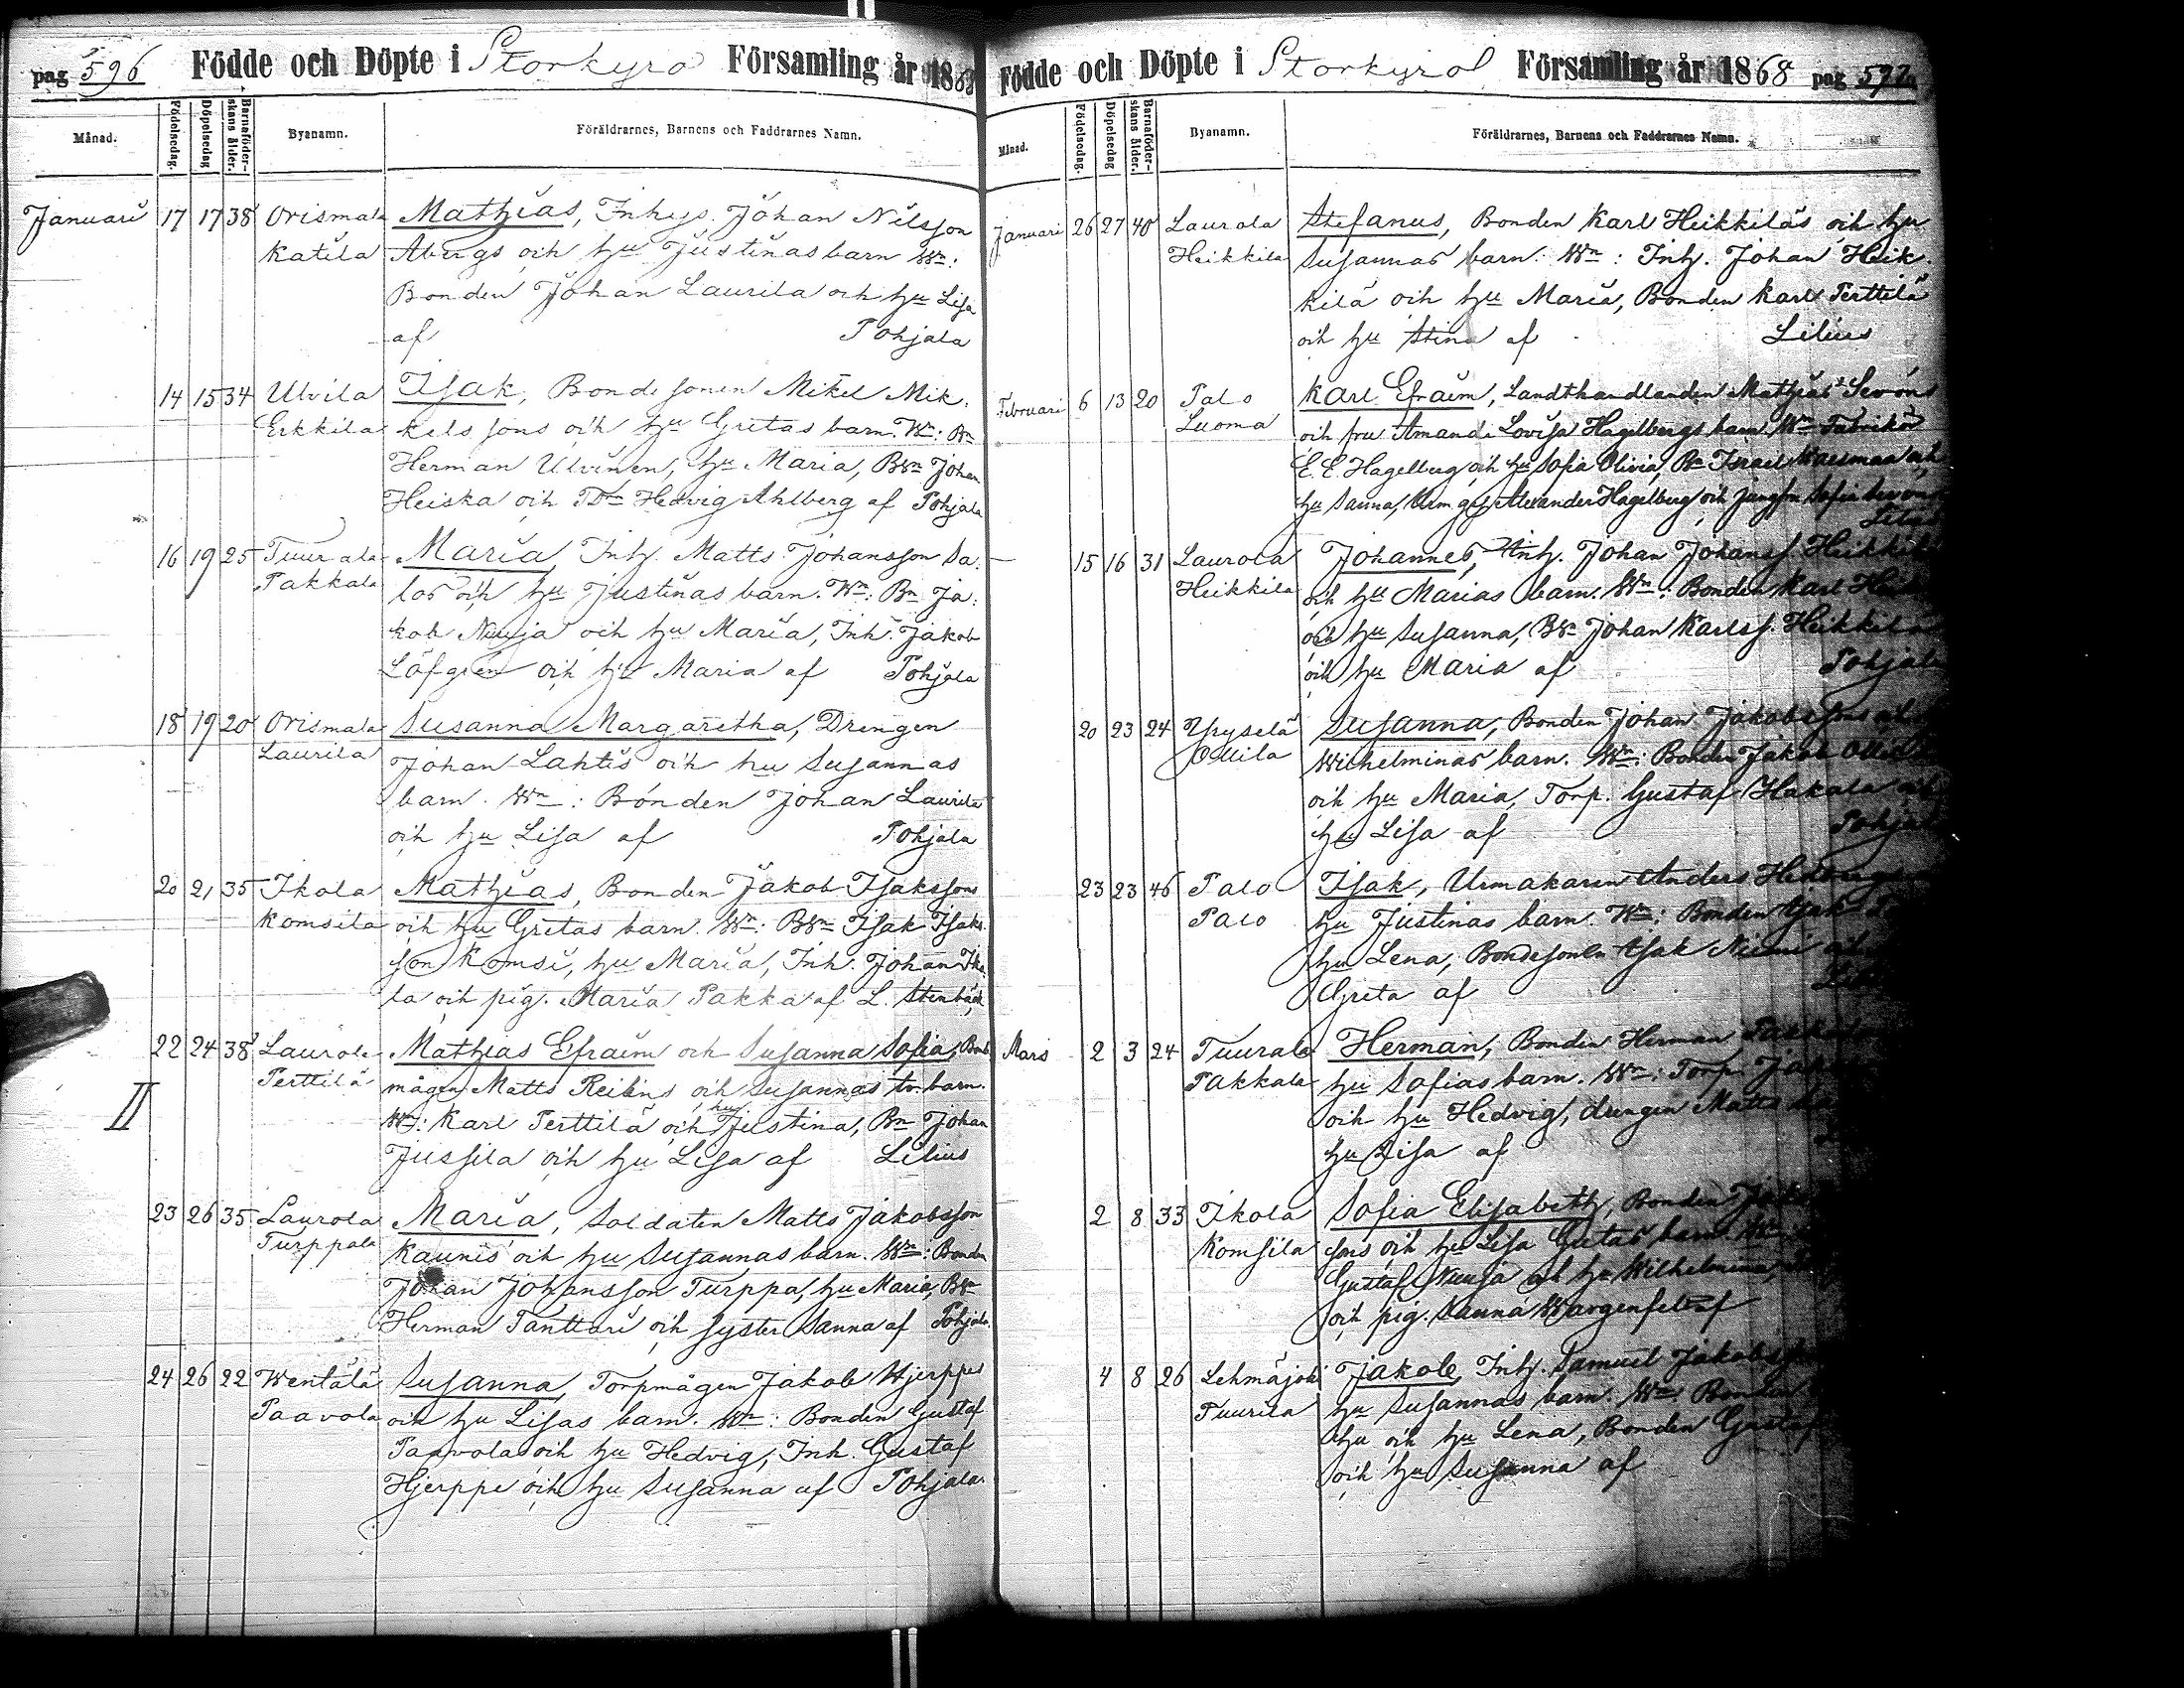 pag 596 Födde och Döpte i Storkyro Församling år 1868
Månad. Födelsedag. Döpelsedag Barnaföderskans ålder. Byanamn. Föräldrarnes, Barnens och Faddrarnes Namn.
Januari 17 17 38 Orismala Mathias, Inhys. Johan Nilsson
Katila Åbergs och hu Justinas barn Wn:
Bonden Johan Laurila och hu Lisa
af Pohjala
14 15 34 Ulvila Isak, Bondesonen Mikel Mik-
Erkkila kelssons och hu Gretas barn. Wn: Bn
Herman Ulvinen, hu Maria, Bn Johan
Heiska och Hedvig Ahlberg af Pohjala
16 19 25 Tuurala Maria Inh. Matts Johansson Sa-
Pakkala los och hu Justinas barn. Wn: Bn Ja-
kob Nuuja och hu Maria, Inh. Jakob
Löfgren och hu Maria af Pohjala
18 19 20 Orismala Susanna Margaretha, Drengen
Laurila Johan Lahtis och hu Susannas
barn. Wn: Bonden Johan Laurila
och hu Lisa af Pohjala
20 21 35 Ikola Mathias, Bonden Jakob Isakssons
Komsila och hu Gretas barn. Wn: Bn Isak Isaks-
son Komsi, hu Maria, Inh. Johan Iko-
la och pig. Maria Pakka af L. Stenbäck
22 24 38 Laurola Mathias Efraim och Susanna Sofia, Bond
Perttilä mågen Matts Reilins och Susannas tv. barn.
II Wn: Karl Perttilä och hu Justina, Bn Johan
Jussila och hu Lisa af Lilius
23 26 35 Laurola Maria, Soldaten Matts Jakobsson
Turppala Kaunis och hu Susannas barn. Wn: Bonden
Johan Johansson Turppa, hu Maria, Bn
Herman Tanttari och syster Sanna af Pohjala.
24 26 22 Wentälä Susanna Torpmågen Jakob Hjerppes
Paavola och hu Lisas barn. Wn: Bonden Gustaf
Paavola och hu Hedvig, Inh. Gustaf
Hjerppe och hu Susanna af Pohjala.
Födde och Döpte i Storkyro Församling år 1868 pag 597.
Månad. Födelsedag. Döpelsedag Barnaföderskans ålder. Byanamn. Föräldrarnes, Barnens och Faddrarnes Namn.
Januari 26 27 40 Laurola Stefanus, Bonden Karl Heikkiläs och hu
Heikkila Susannas barn. Wn: Inh. Johan Heik-
kilä och hu Maria, Bonden Karl Perttilä
och hu Stina af Lilius
Februari 6 13 20 Palo Karl Efraim, Landthandlanden Mathias Sevóns
Luoma och fru Amanda Lovisa Hagelbergs barn Wn Fabrikör
E. E. Hagelberg och hu Sofia Olivia, Bn Israel och
hu Sanna, Alexander Hagelberg och Jungfru Sofia Sevón
15 16 31 Laurola Johannes, Inh. Johan Johanss. Heikkilä
Heikkila och hu Marias barn. Wn: Bonden Karl
och hu Susanna, Bn Johan Karlss. Heikkilä
och hu Maria af Pohjala
20 23 24 Yryselä Susanna, Bonden Johan Jakobssons
Ollila Wilhelminas barn. Wn: Bonden Jakob Ollila
och hu Maria, Torp. Gustaf Hakala
hu Lisa af Pohjala
23 23 46 Palo Isak, Urmakaren Anders Hedbergs
Palo hu Justinas barn. Wn: Bonden Isak
hu Lena, Bondesonen Isak Niemi
Greta af
Mars 2 3 24 Tuurala Herman, Bonden Herman Pakkala
Pakkala hu Sofias barn. Wn: Torp.
och hu Hedvig, drengen Matts
hu Lisa af
2 8 33 Ikola Sofia Elisabeth, Bonden
Komsila sons och hu Lisa Gretas barn. Wn
Gustaf Nuuja och hu Wilhelmina,
och pig. Sanna Wargenfelt af
4 8 26 Lehmäjoki Jakob, Inh. Samuel Jakobs
Tuurila hu Susannas barn. Wn Bonden
hu och hu Lena, Bonden Gustaf
och hu Susanna af